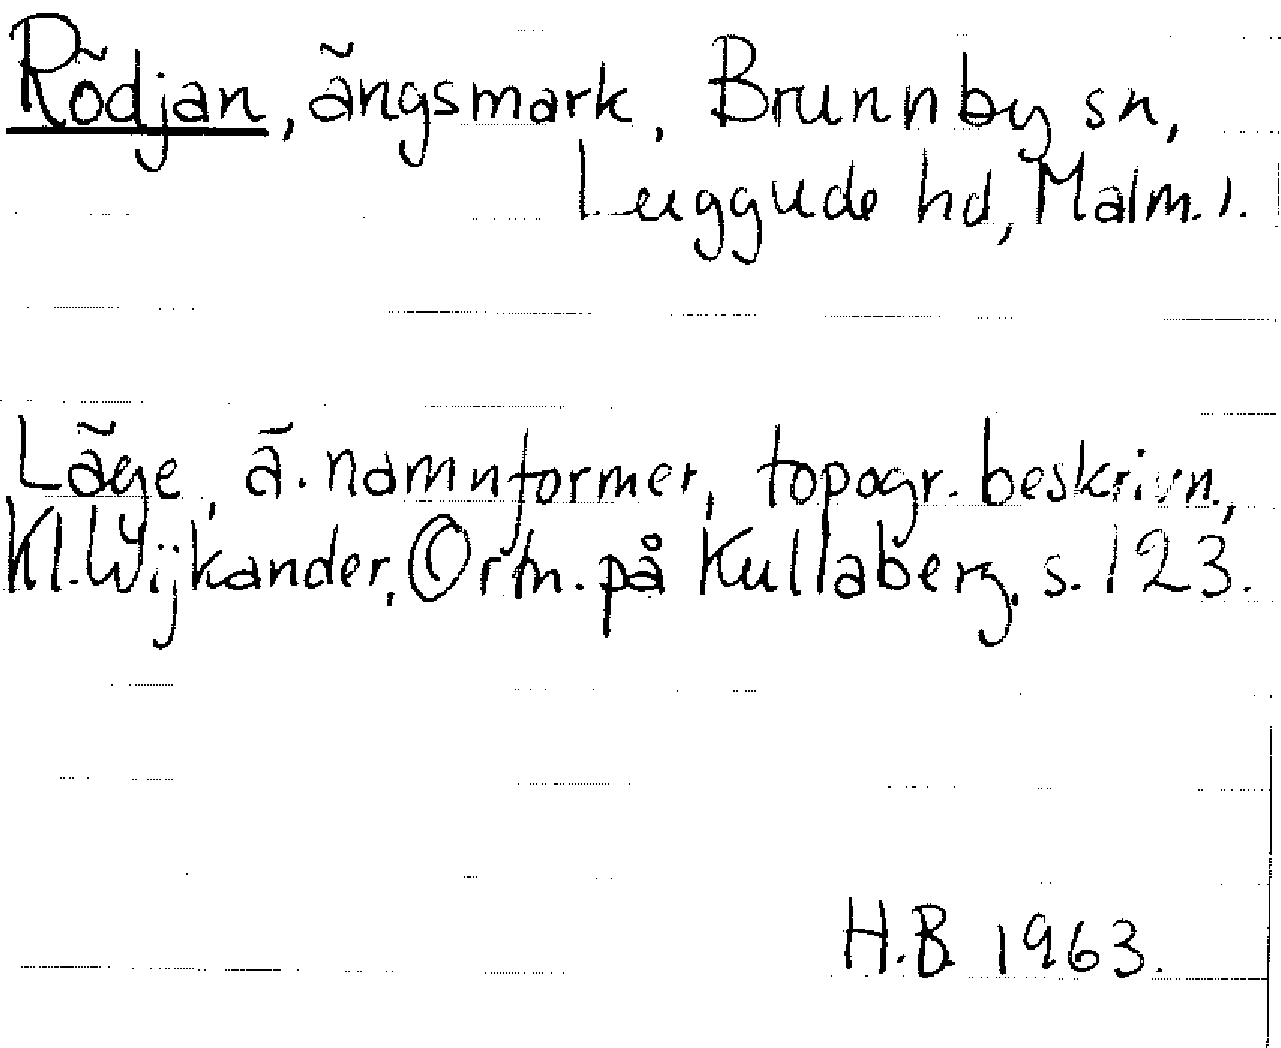 Rödjan, ängsmark, Brunnby sn,
Luggude hd, Malm. l.
Läge, ä. namnformer, topogr. beskrivn.,
Kl. Wijkander, Ortn. på Kullaberg, s. 123.
H.B 1963.